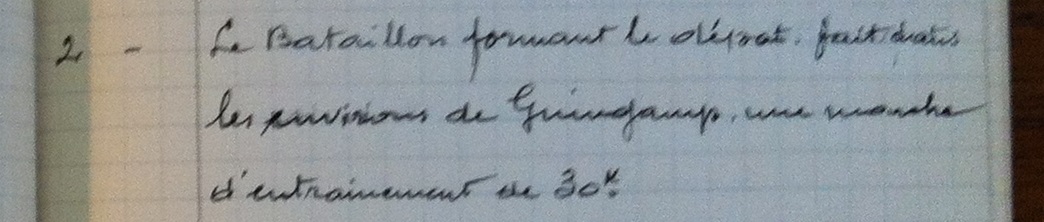 2 - Le Bataillon formant le dépot. fait dans
les environs de Guingamp, une marche
d'entrainement de 30K.